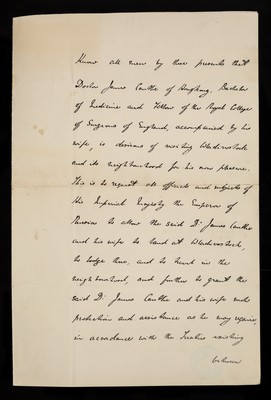 Know all men by these presents that
Doctor James Cantlie of Hongkong, Bachelor
of Medicine and Fellow of the Royal College
of Surgeons of England, accompanied by his
wife, is desirous of visiting Vladivostock
and its neighbourhood for his own pleasure.
This is to request all officials and subjects of
His Imperial Majesty the Emperor of
Russia to allow the said Dr. James Cantlie
and his wife to land at Vladivostock,
to lodge there, and to travel in the
neighbourhood, and further to grant the
said Dr. James Cantlie and his wife such
protection and assistance as he may require,
in accordance with the Treaties existing
between